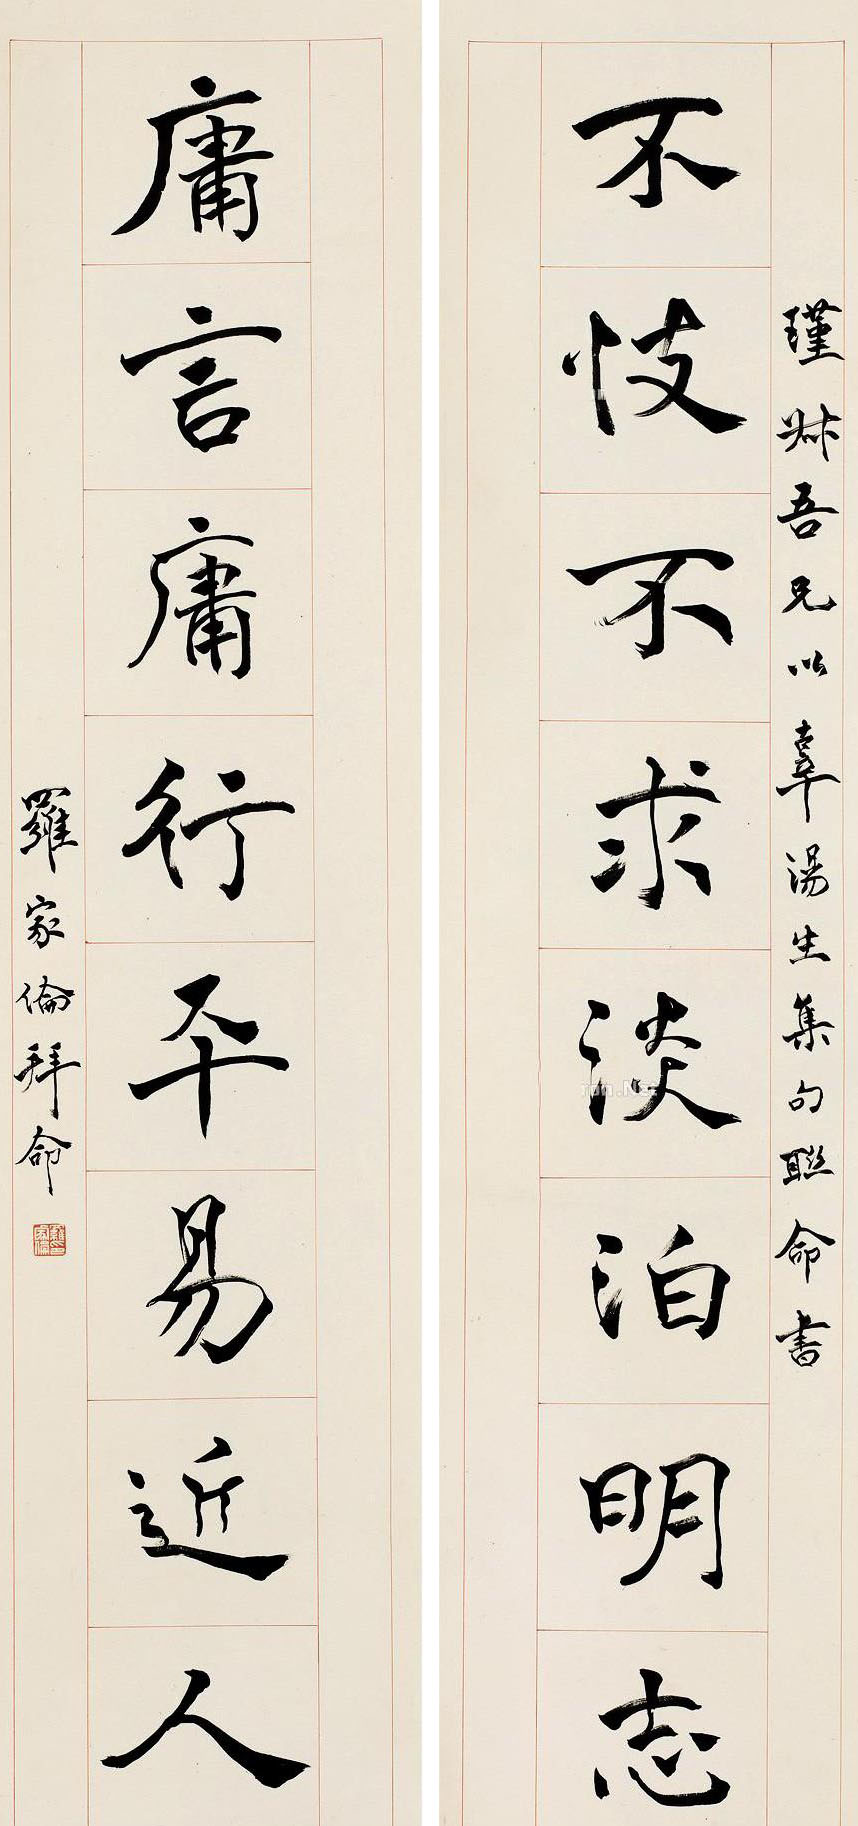 瑾叔吾兄以辜湯生集句聯命書
不忮不求淡泊明志
庸言庸行平易近人
羅家倫拜命